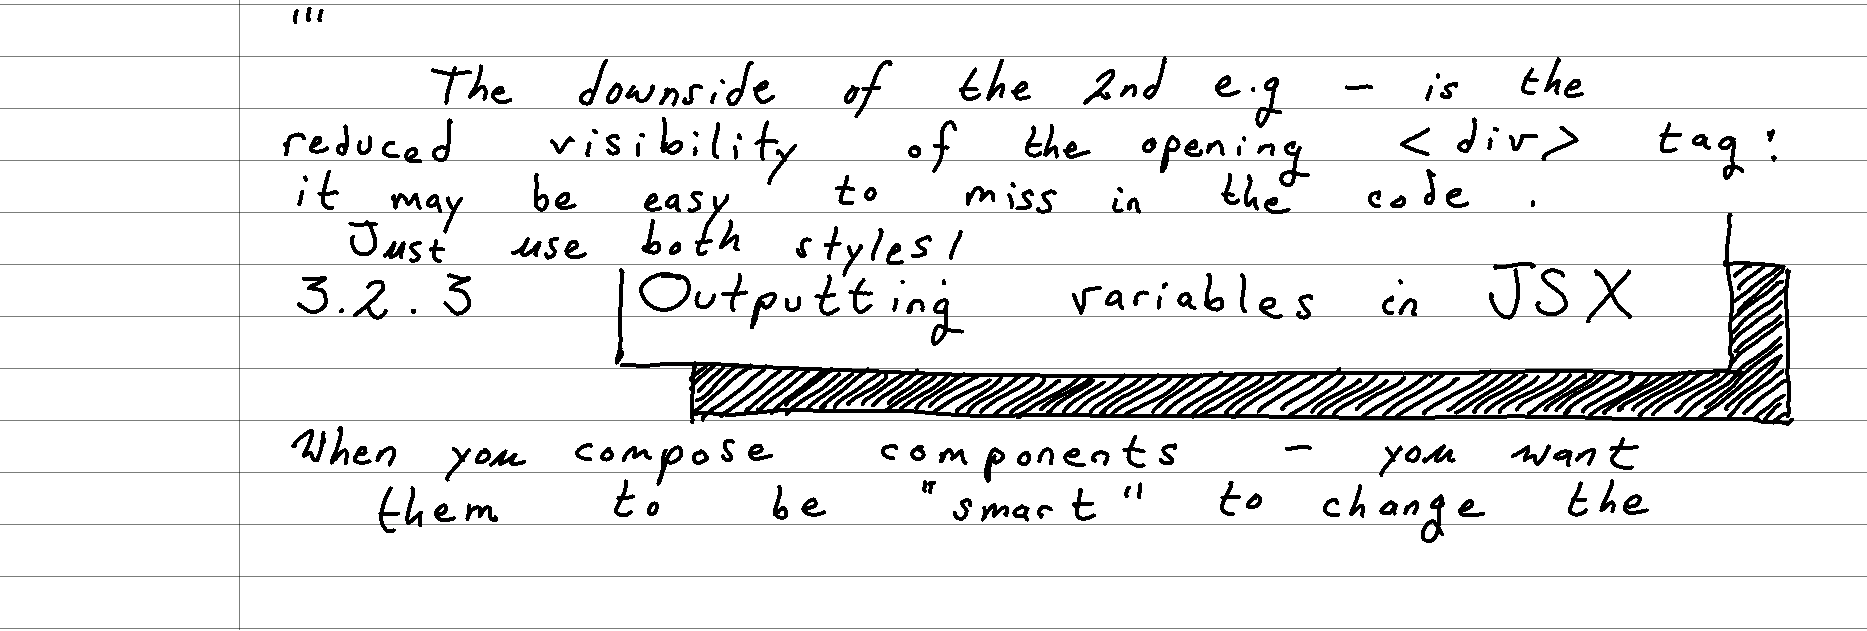 '''
The downside of the 2nd e.g - is the
reduced visibility of the opening <div> tag:
it may be easy to miss in the code .
Just use both styles!
3.2.3 Outputting variables in JSX
When you compose components - you want
them to be "smart" to change the